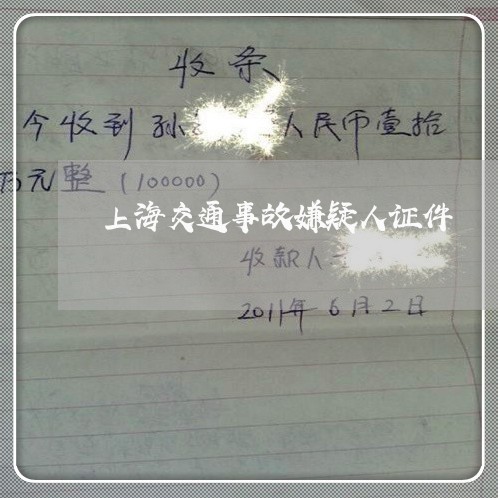 收条
今收到孙 人民币壹拾
万元整(100000)
上海交通事故嫌疑人证件
收款人:
2011年6月2日